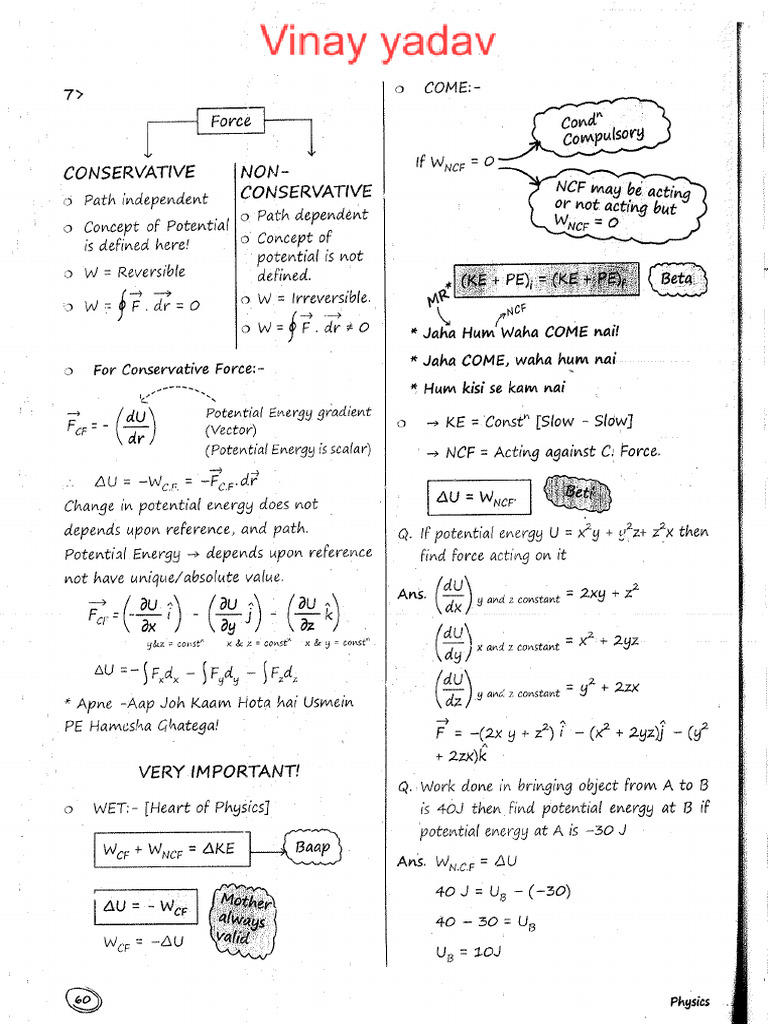 Vinay yadav
7>
Force
CONSERVATIVE
○ Path independent
○ Concept of Potential
is defined here!
○ W = Reversible
○ W = ∮F⃗ . dr⃗ = 0
NON-
CONSERVATIVE
○ Path dependent
○ Concept of
potential is not
defined.
○ W = Irreversible.
○ W = ∮F⃗ . dr⃗ ≠ 0
○ For Conservative Force:-
F⃗_CF = - (dU/dr)
Potential Energy gradient
(Vector)
(Potential Energy is scalar)
∴ ΔU = -W_C.F. = -F⃗_C.F.dr⃗
Change in potential energy does not
depends upon reference, and path.
Potential Energy → depends upon reference
not have unique/absolute value.
F⃗_CF = (-∂U/∂x î) - (∂U/∂y ĵ) - (∂U/∂z k̂)
y&z = constⁿ x & z = constⁿ x & y = constⁿ
ΔU = -∫F_xd_x - ∫F_yd_y - ∫F_zd_z
* Apne -Aap Joh Kaam Hota hai Usmein
PE Hamesha Ghatega!
VERY IMPORTANT!
○ WET:- [Heart of Physics]
W_CF + W_NCF = ΔKE
Baap
ΔU = - W_CF
W_CF = -ΔU
Mother
always
valid
60
○ COME:-
If W_NCF = 0
Condⁿ
Compulsory
NCF may be acting
or not acting but
W_NCF = 0
(KE + PE)_i = (KE + PE)_i
Beta
MR*
NCF
* Jaha Hum Waha COME nai!
* Jaha COME, waha hum nai
* Hum kisi se kam nai
○ → KE = Constⁿ [Slow - Slow]
→ NCF = Acting against C. Force.
ΔU = W_NCF.
Beti
Q. If potential energy U = x²y + y²z+ z²x then
find force acting on it
Ans. (dU/dx) y and z constant = 2xy + z²
(dU/dy) x and z constant = x² + 2yz
(dU/dz) y and z constant = y² + 2zx
F⃗ = -(2x y + z²) î - (x² + 2yz)ĵ - (y²
+ 2zx)k̂
Q. Work done in bringing object from A to B
is 40J then find potential energy at B if
potential energy at A is -30 J
Ans. W_N.C.F = ΔU
40 J = U_B - (-30)
40 - 30 = U_B
U_B = 10J
Physics